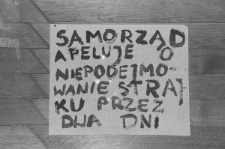 SAMORZĄD
APELUJE O
NIEPODEJMO
WANIE STRAJ
KU PRZEZ
DWA DNI